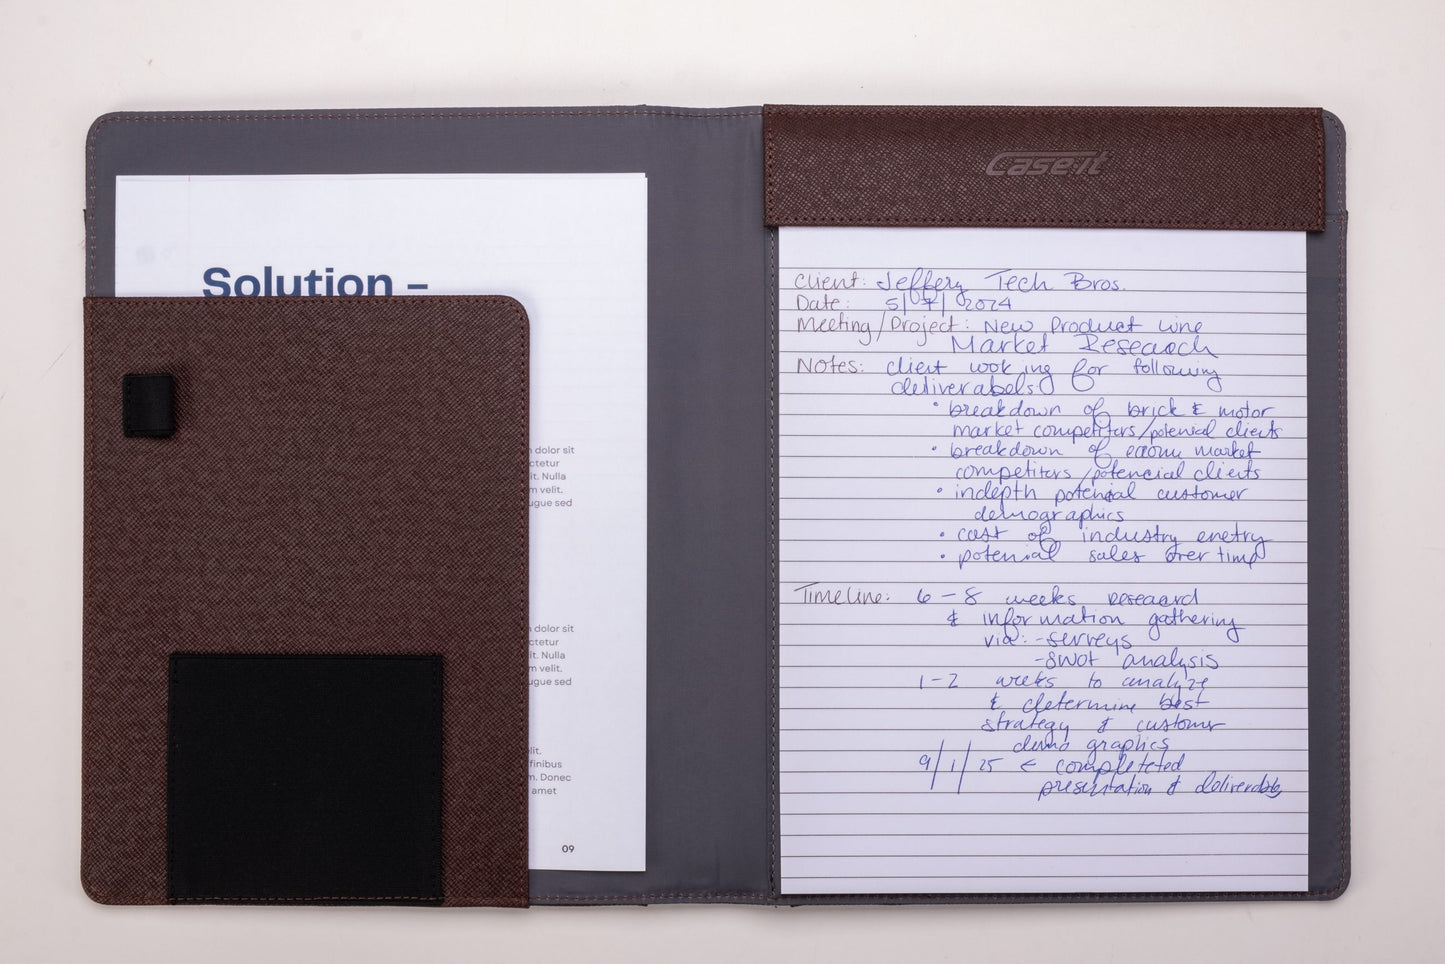 Solution –
n dolor sit
ctetur
it. Nulla
m velit.
ugue sed
n dolor sit
ctetur
it. Nulla
m velit.
ugue sed
lit.
finibus
m. Donec
amet
09
Case·it
Client: Jeffery Tech Bros.
Date: 5/7/2024
Meeting/Project: New Product Line
Market Reseaoch
Notes: client wooking for following
deliverables:
• breakdown of brick & motor
market competitors/potenial clients
• breakdown of ecomm market
competitors/potencial clients
• indepth potencial customer
demographics
• cost of industry enetry
• potenial sales over time
Timeline: 6-8 weeks
& information gathering
via: -serveys
-SWOT analysis
1-2 weeks to analyze
& determine best
strategy & customer
demo graphics
9/1/25 ← completeted
presentation & deliverables